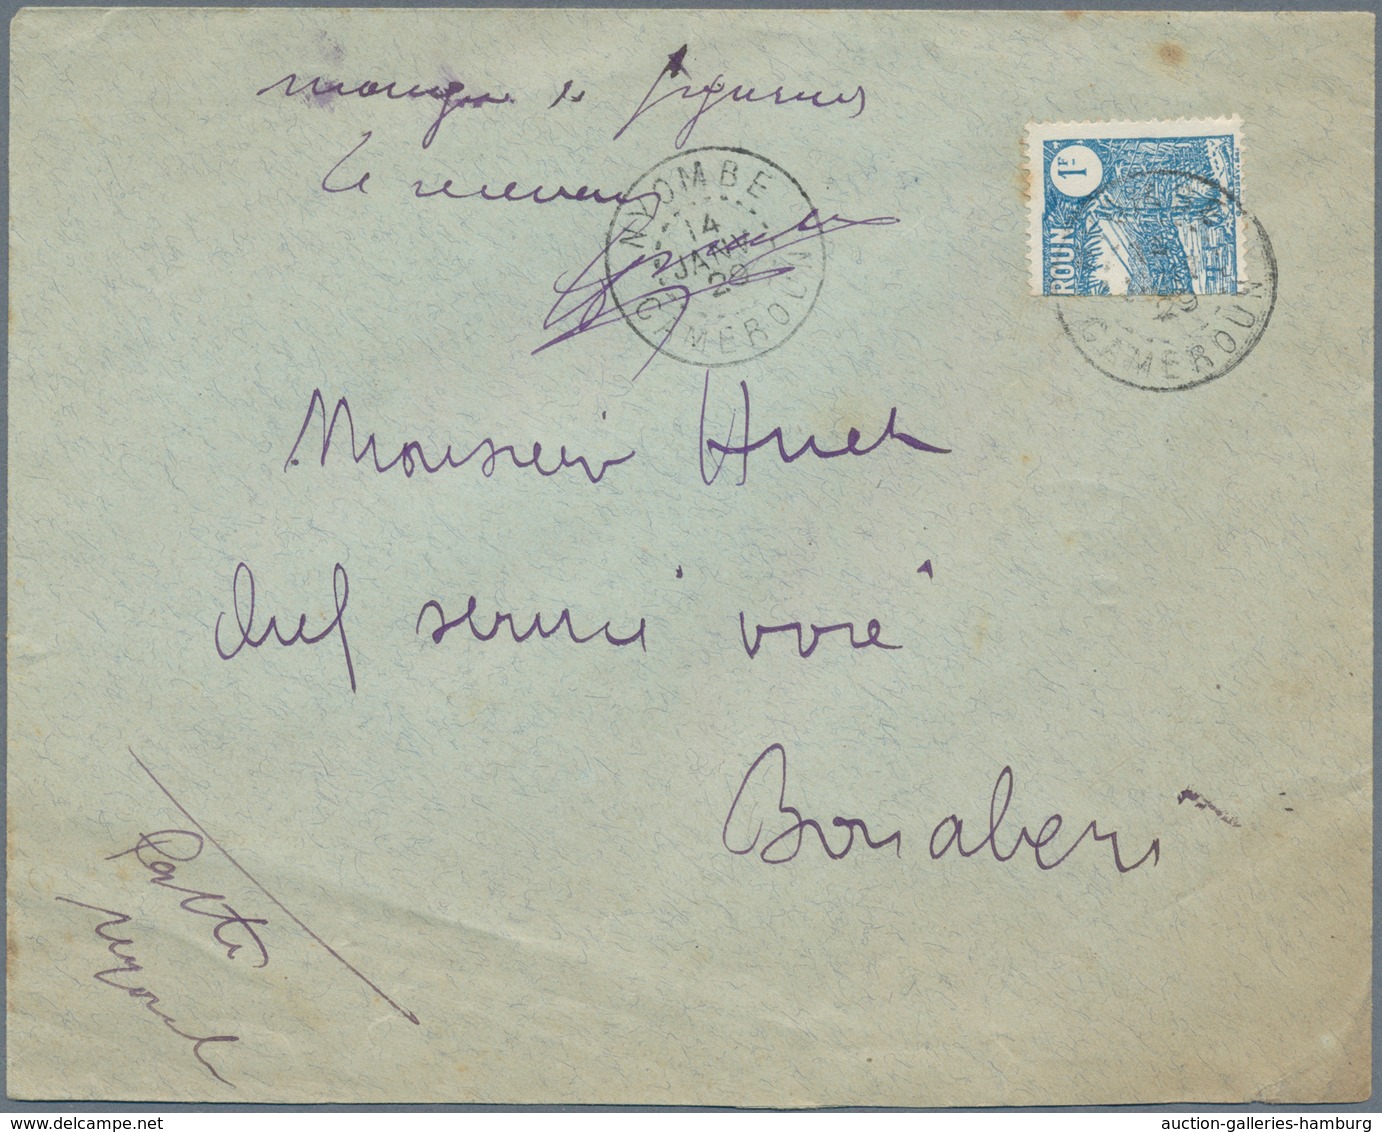 manque de figurines
le receveur
NYOMBE
14
JANV
29
CAMEROUN
1F
ROUN
29
CAMEROUN
Monsieur Huet
chef service voie
Bonaberi
Nyombe
auction-galleries-hamburg